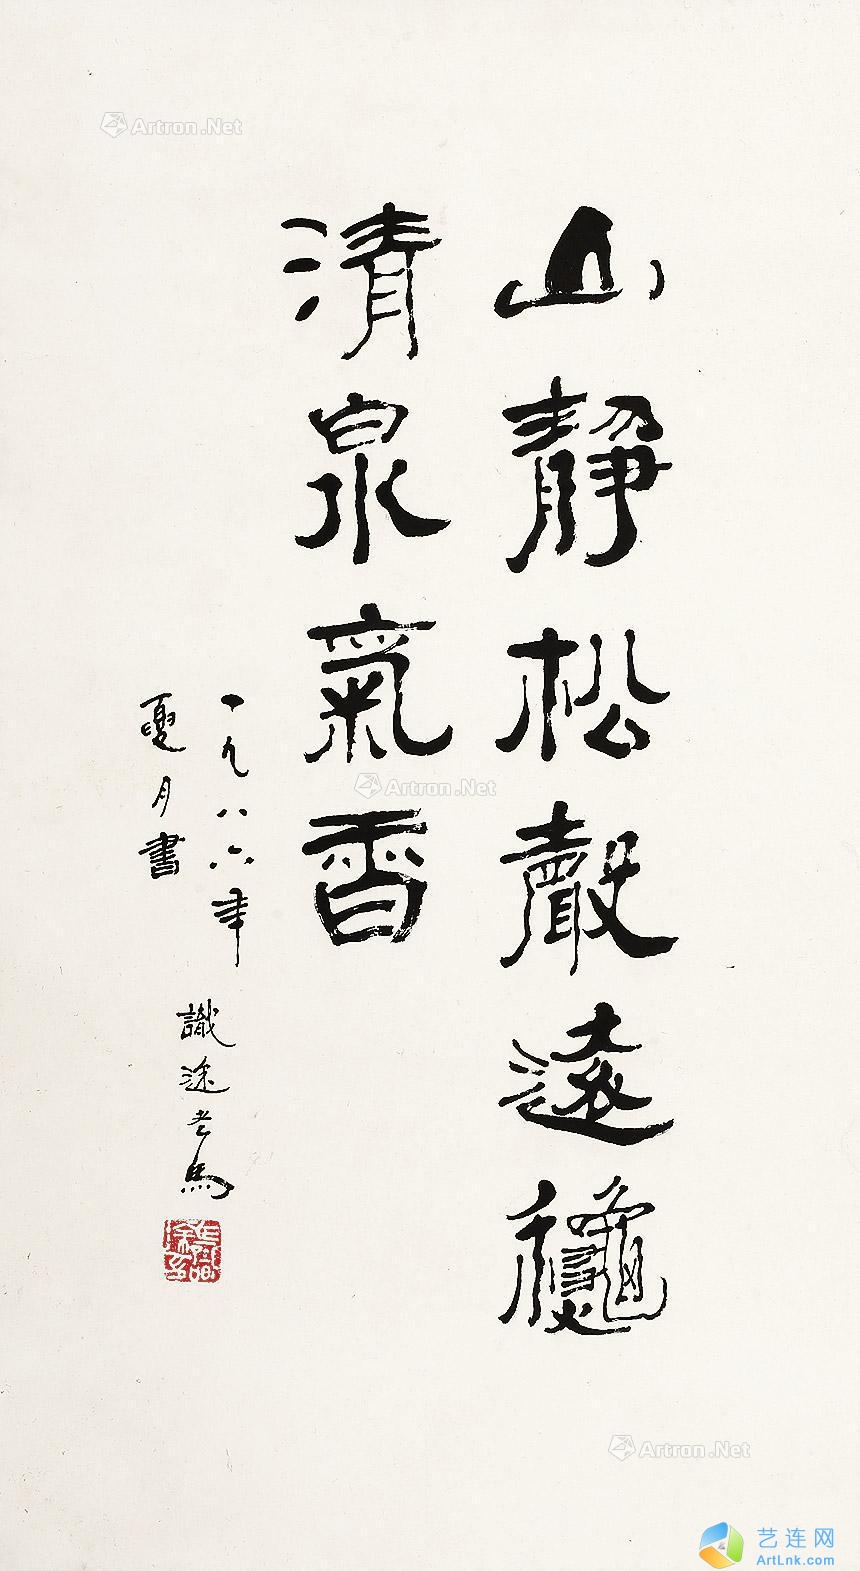 山靜松聲遠龝
清泉氣香
一九八六年
夏月書
識途老馬
Artron.Net
Artron.Net
Artron.Net
艺连网
ArtLnk.com